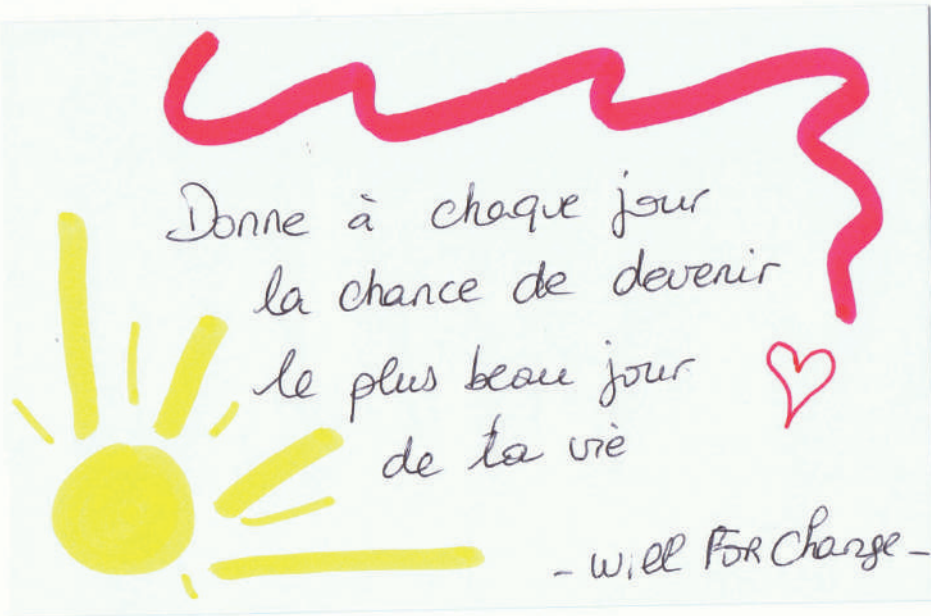 Donne à chaque jour
la chance de devenir
le plus beau jour
de ta vie
- will FOR Change -